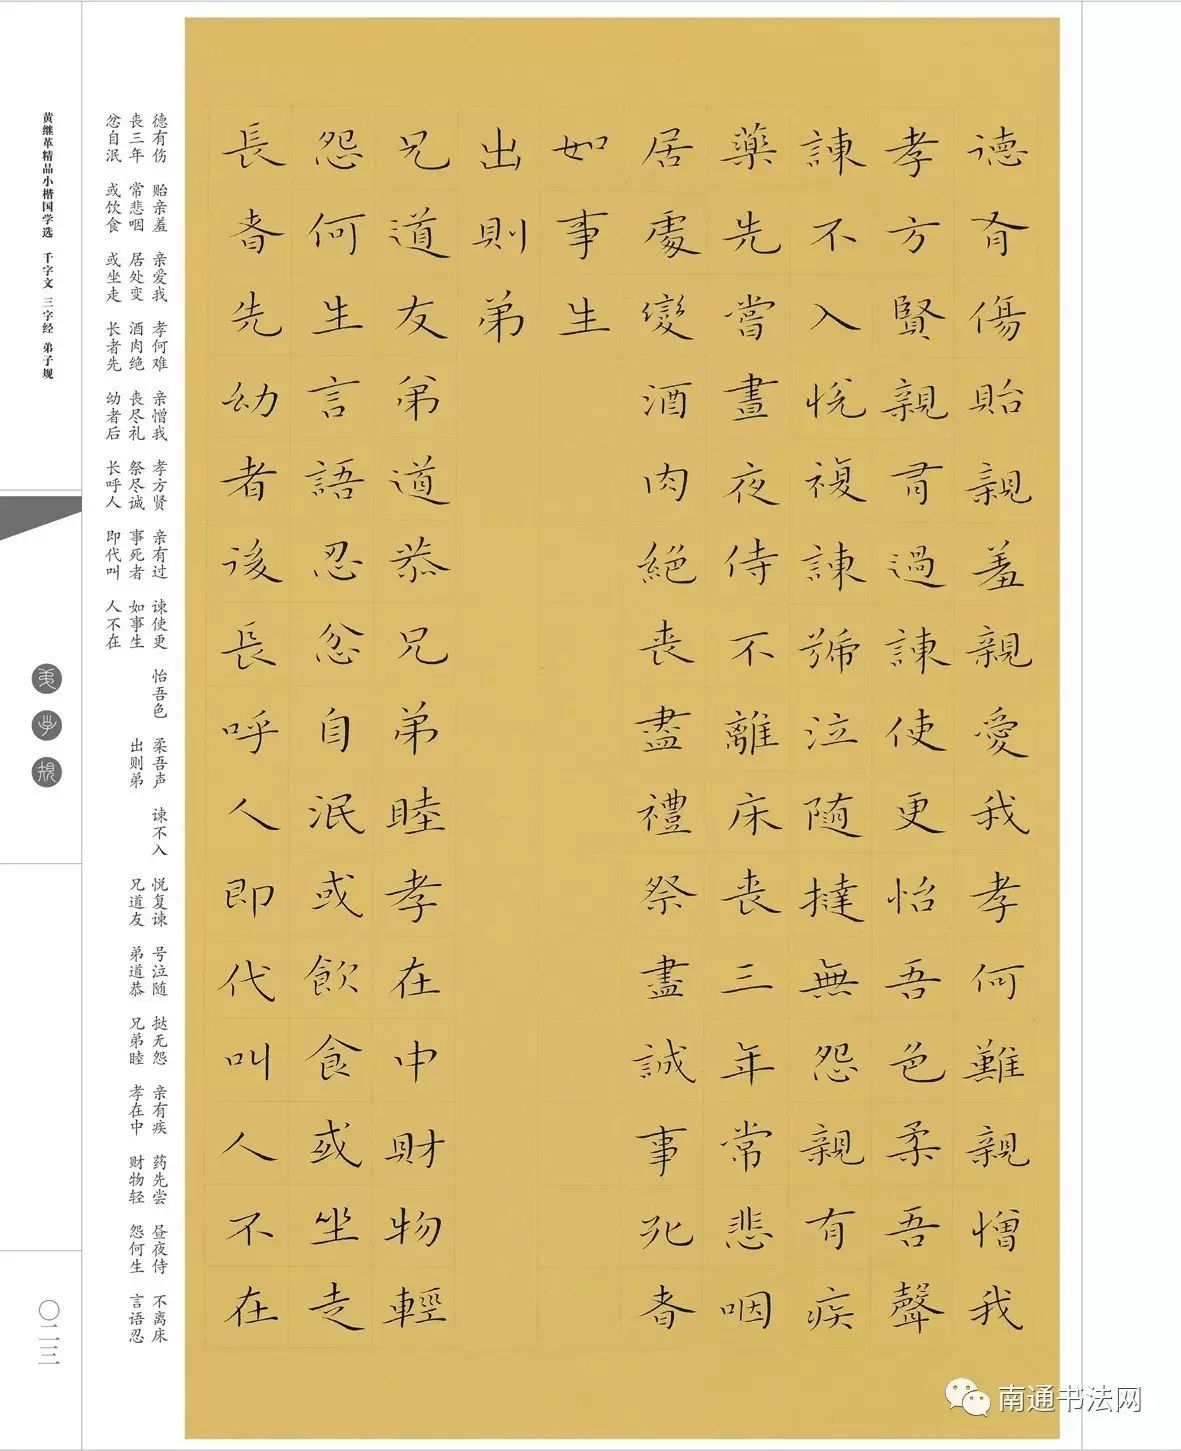 德有傷貽親羞親愛我孝何難親憎我
孝方賢親有過諫使更怡吾色柔吾聲
諫不入悅複諫號泣随撻無怨親有疾
藥先嘗晝夜侍不離床喪三年常悲咽
居處變酒肉絕喪盡禮祭盡誠事死者
如事生
出則弟
兄道友弟道恭兄弟睦孝在中財物輕
怨何生言語忍忿自泯或飲食或坐走
長者先幼者後長呼人即代叫人不在
德有伤 贻亲羞 亲爱我 孝何难 亲憎我 孝方贤 亲有过 谏使更 怡吾色 柔吾声 谏不入 悦复谏 号泣随 挞无怨 亲有疾 药先尝 昼夜侍 不离床
丧三年 常悲咽 居处变 酒肉绝 丧尽礼 祭尽诚 事死者 如事生 出则弟 兄道友 弟道恭 兄弟睦 孝在中 财物轻 怨何生 言语忍
忿自泯 或饮食 或坐走 长者先 幼者后 长呼人 即代叫 人不在
黄继革精品小楷国学选 千字文 三字经 弟子规
弟子规
〇二三
南通书法网